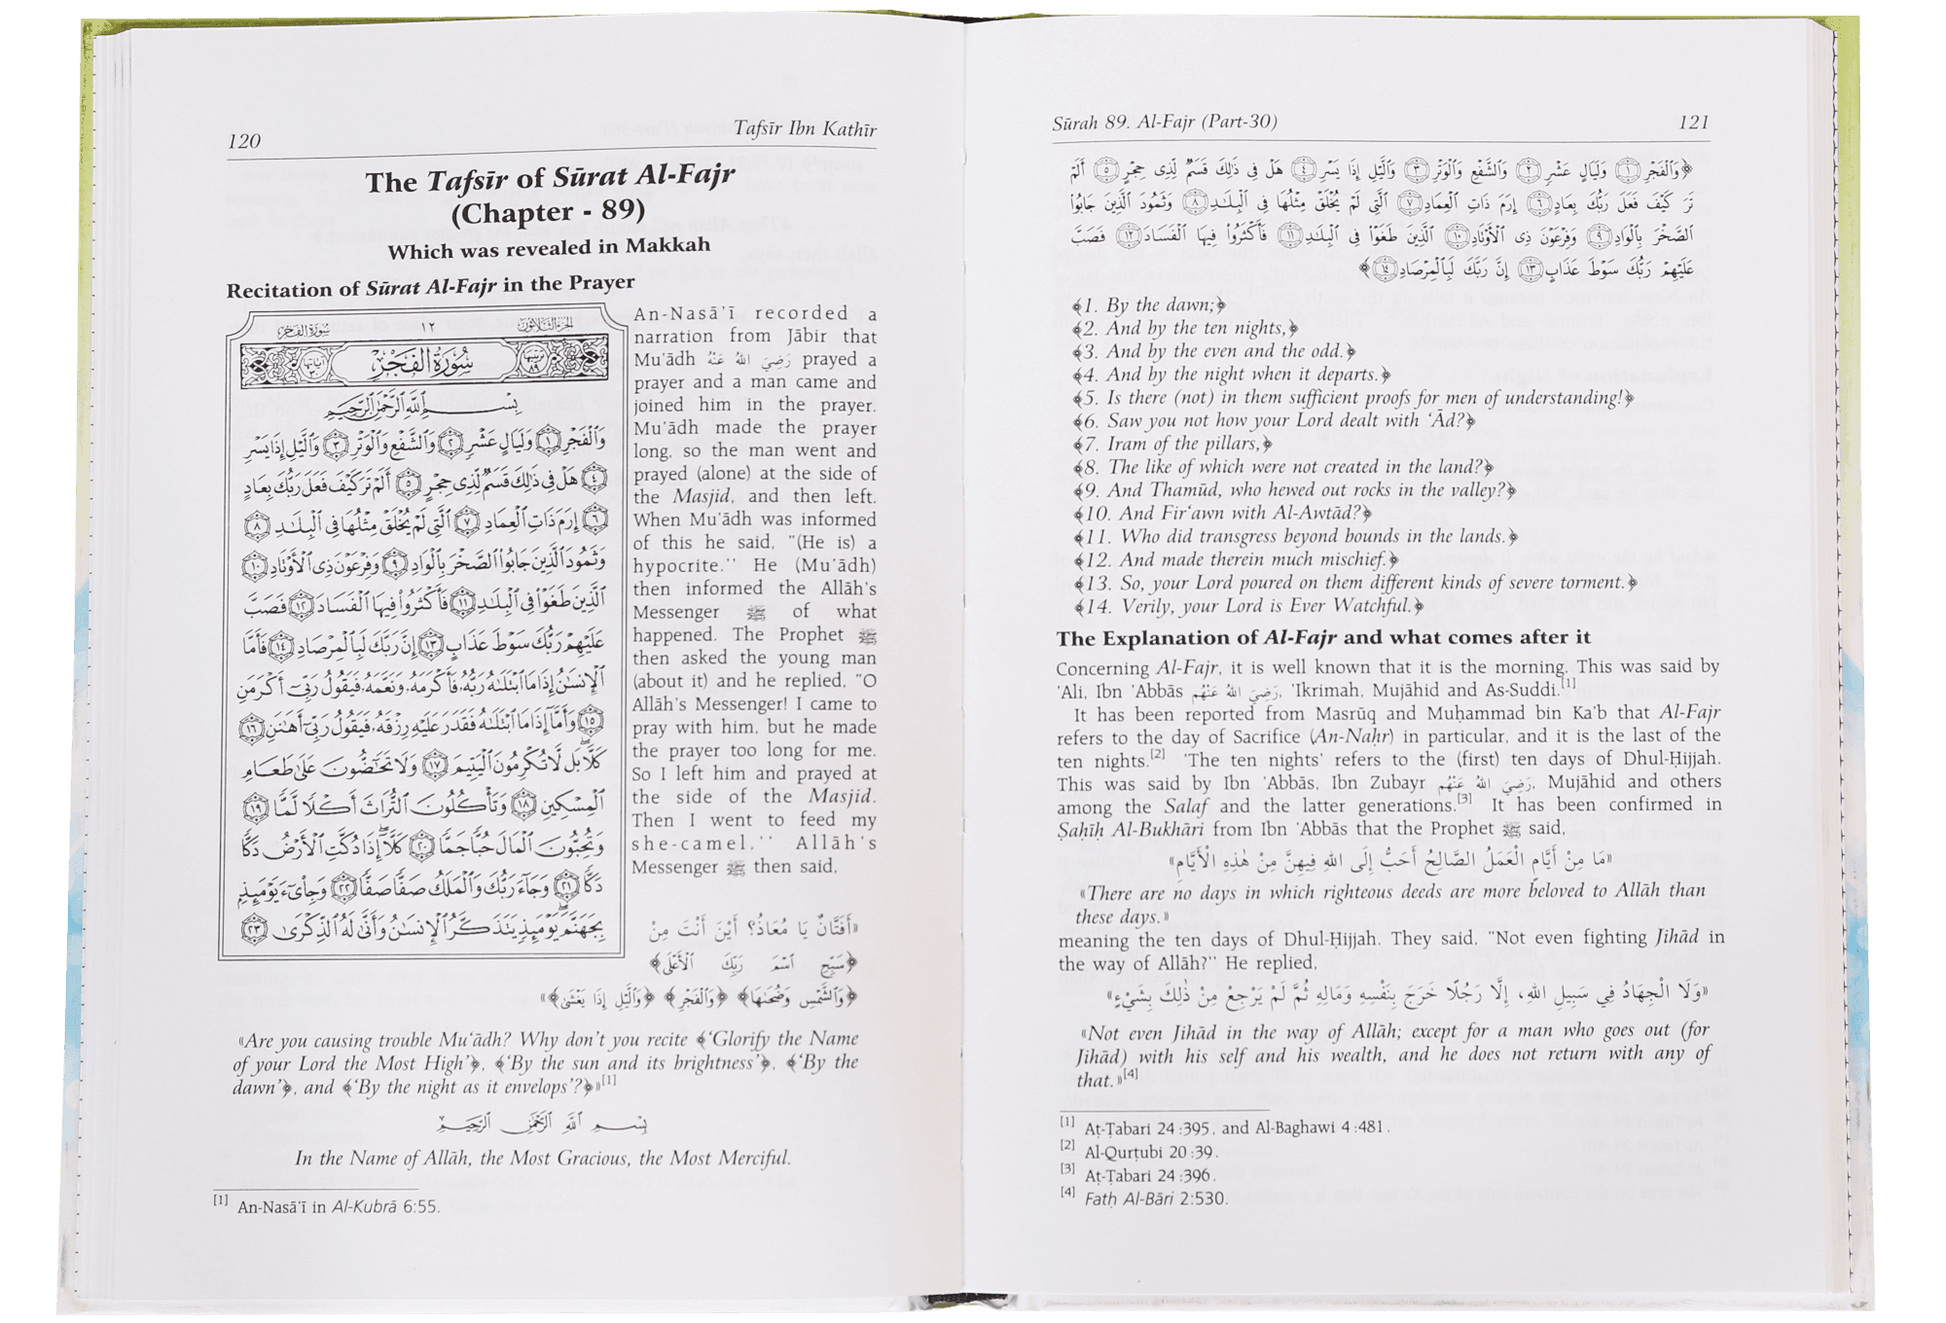 120
Tafsīr Ibn Kathīr
The Tafsīr of Sūrat Al-Fajr
(Chapter - 89)
Which was revealed in Makkah
Recitation of Sūrat Al-Fajr in the Prayer
سورة الفجر
١٢
الجزء الثلاثون
سُورَةُ الفَجْرِ
بِسْمِ ٱللَّهِ ٱلرَّحْمَٰنِ ٱلرَّحِيمِ
وَٱلْفَجْرِ ١ وَلَيَالٍ عَشْرٍ ٢ وَٱلشَّفْعِ وَٱلْوَتْرِ ٣ وَٱلَّيْلِ إِذَا يَسْرِ
٤ هَلْ فِى ذَٰلِكَ قَسَمٌ لِّذِى حِجْرٍ ٥ أَلَمْ تَرَ كَيْفَ فَعَلَ رَبُّكَ بِعَادٍ
٦ إِرَمَ ذَاتِ ٱلْعِمَادِ ٧ ٱلَّتِى لَمْ يُخْلَقْ مِثْلُهَا فِى ٱلْبِلَٰدِ ٨
وَثَمُودَ ٱلَّذِينَ جَابُوا۟ ٱلصَّخْرَ بِٱلْوَادِ ٩ وَفِرْعَوْنَ ذِى ٱلْأَوْنَادِ ١٠
ٱلَّذِينَ طَغَوْا۟ فِى ٱلْبِلَٰدِ ١١ فَأَكْثَرُوا۟ فِيهَا ٱلْفَسَادَ ١٢ فَصَبَّ
عَلَيْهِمْ رَبُّكَ سَوْطَ عَذَابٍ ١٣ إِنَّ رَبَّكَ لَبِٱلْمِرْصَادِ ١٤ فَأَمَّا
ٱلْإِنسَٰنُ إِذَا مَا ٱبْتَلَىٰهُ رَبُّهُۥ فَأَكْرَمَهُۥ وَنَعَّمَهُۥ فَيَقُولُ رَبِّىٓ أَكْرَمَنِ
١٥ وَأَمَّآ إِذَا مَا ٱبْتَلَىٰهُ فَقَدَرَ عَلَيْهِ رِزْقَهُۥ فَيَقُولُ رَبِّىٓ أَهَٰنَنِ ١٦
كَلَّا بَل لَّا تُكْرِمُونَ ٱلْيَتِيمَ ١٧ وَلَا تَحَٰٓضُّونَ عَلَىٰ طَعَامِ
ٱلْمِسْكِينِ ١٨ وَتَأْكُلُونَ ٱلتُّرَاثَ أَكْلًا لَّمًّا ١٩
وَتُحِبُّونَ ٱلْمَالَ حُبًّا جَمًّا ٢٠ كَلَّآ إِذَا دُكَّتِ ٱلْأَرْضُ دَكًّا
دَكًّا ٢١ وَجَآءَ رَبُّكَ وَٱلْمَلَكُ صَفًّا صَفًّا ٢٢ وَجِا۟ىٓءَ يَوْمَئِذٍۭ
بِجَهَنَّمَ يَوْمَئِذٍ يَتَذَكَّرُ ٱلْإِنسَٰنُ وَأَنَّىٰ لَهُ ٱلذِّكْرَىٰ ٢٣
An-Nasā'ī recorded a
narration from Jābir that
Mu'ādh رَضِيَ اللهُ عَنْهُ prayed a
prayer and a man came and
joined him in the prayer.
Mu'ādh made the prayer
long, so the man went and
prayed (alone) at the side of
the Masjid, and then left.
When Mu'ādh was informed
of this he said, "(He is) a
hypocrite.'' He (Mu'ādh)
then informed the Allāh's
Messenger ﷺ of what
happened. The Prophet ﷺ
then asked the young man
(about it) and he replied, "O
Allāh's Messenger! I came to
pray with him, but he made
the prayer too long for me.
So I left him and prayed at
the side of the Masjid.
Then I went to feed my
she-camel.'' Allāh's
Messenger ﷺ then said,
«أَفَتَّانٌ يَا مُعَاذُ؟ أَيْنَ أَنْتَ مِنْ
﴿سَبِّحِ ٱسْمَ رَبِّكَ ٱلْأَعْلَى﴾
﴿وَٱلشَّمْسِ وَضُحَىٰهَا﴾ ﴿وَٱلْفَجْرِ﴾ ﴿وَٱلَّيْلِ إِذَا يَغْشَىٰ﴾»
«Are you causing trouble Mu'ādh? Why don't you recite ﴾'Glorify the Name
of your Lord the Most High'﴿, ﴾'By the sun and its brightness'﴿, ﴾'By the
dawn'﴿, and ﴾'By the night as it envelops'?﴿»[1]
بِسْمِ ٱللَّهِ ٱلرَّحْمَٰنِ ٱلرَّحِيمِ
In the Name of Allāh, the Most Gracious, the Most Merciful.
[1] An-Nasā'ī in Al-Kubrā 6:55.
Sūrah 89. Al-Fajr (Part-30)
121
﴿وَٱلْفَجْرِ ١ وَلَيَالٍ عَشْرٍ ٢ وَٱلشَّفْعِ وَٱلْوَتْرِ ٣ وَٱلَّيْلِ إِذَا يَسْرِ ٤ هَلْ فِى ذَٰلِكَ قَسَمٌ لِّذِى حِجْرٍ ٥ أَلَمْ
تَرَ كَيْفَ فَعَلَ رَبُّكَ بِعَادٍ ٦ إِرَمَ ذَاتِ ٱلْعِمَادِ ٧ ٱلَّتِى لَمْ يُخْلَقْ مِثْلُهَا فِى ٱلْبِلَٰدِ ٨ وَثَمُودَ ٱلَّذِينَ جَابُوا۟
ٱلصَّخْرَ بِٱلْوَادِ ٩ وَفِرْعَوْنَ ذِى ٱلْأَوْنَادِ ١٠ ٱلَّذِينَ طَغَوْا۟ فِى ٱلْبِلَٰدِ ١١ فَأَكْثَرُوا۟ فِيهَا ٱلْفَسَادَ ١٢ فَصَبَّ
عَلَيْهِمْ رَبُّكَ سَوْطَ عَذَابٍ ١٣ إِنَّ رَبَّكَ لَبِٱلْمِرْصَادِ ١٤﴾
﴾1. By the dawn;﴿
﴾2. And by the ten nights,﴿
﴾3. And by the even and the odd.﴿
﴾4. And by the night when it departs.﴿
﴾5. Is there (not) in them sufficient proofs for men of understanding!﴿
﴾6. Saw you not how your Lord dealt with 'Ād?﴿
﴾7. Iram of the pillars,﴿
﴾8. The like of which were not created in the land?﴿
﴾9. And Thamūd, who hewed out rocks in the valley?﴿
﴾10. And Fir'awn with Al-Awtād?﴿
﴾11. Who did transgress beyond bounds in the lands.﴿
﴾12. And made therein much mischief.﴿
﴾13. So, your Lord poured on them different kinds of severe torment.﴿
﴾14. Verily, your Lord is Ever Watchful.﴿
The Explanation of Al-Fajr and what comes after it
Concerning Al-Fajr, it is well known that it is the morning. This was said by
'Ali, Ibn 'Abbās رَضِيَ اللهُ عَنْهُم, 'Ikrimah, Mujāhid and As-Suddi.[1]
It has been reported from Masrūq and Muḥammad bin Ka'b that Al-Fajr
refers to the day of Sacrifice (An-Naḥr) in particular, and it is the last of the
ten nights.[2] 'The ten nights' refers to the (first) ten days of Dhul-Ḥijjah.
This was said by Ibn 'Abbās, Ibn Zubayr رَضِيَ اللهُ عَنْهُم, Mujāhid and others
among the Salaf and the latter generations.[3] It has been confirmed in
Ṣaḥīḥ Al-Bukhāri from Ibn 'Abbās that the Prophet ﷺ said,
«مَا مِنْ أَيَّامٍ الْعَمَلُ الصَّالِحُ أَحَبُّ إِلَى اللهِ فِيهِنَّ مِنْ هٰذِهِ الْأَيَّامِ»
«There are no days in which righteous deeds are more beloved to Allāh than
these days.»
meaning the ten days of Dhul-Ḥijjah. They said, "Not even fighting Jihād in
the way of Allāh?'' He replied,
«وَلَا الْجِهَادُ فِي سَبِيلِ اللهِ، إِلَّا رَجُلًا خَرَجَ بِنَفْسِهِ وَمَالِهِ ثُمَّ لَمْ يَرْجِعْ مِنْ ذٰلِكَ بِشَيْءٍ»
«Not even Jihād in the way of Allāh; except for a man who goes out (for
Jihād) with his self and his wealth, and he does not return with any of
that.»[4]
[1] Aṭ-Ṭabari 24:395, and Al-Baghawi 4:481.
[2] Al-Qurṭubi 20:39.
[3] Aṭ-Ṭabari 24:396.
[4] Fatḥ Al-Bāri 2:530.